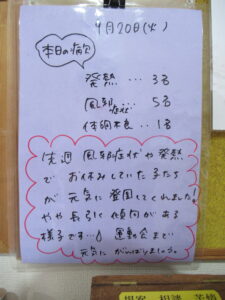 9月20日(火)
本日の病欠
発熱 … 3名
風邪症状 … 5名
体調不良 … 1名
先週 風邪症状や発熱
でお休みしていた子たち
が元気に登園してくれました!
やや長引く傾向がある
様子です… 運動会まで
元気に がんばりましょう。